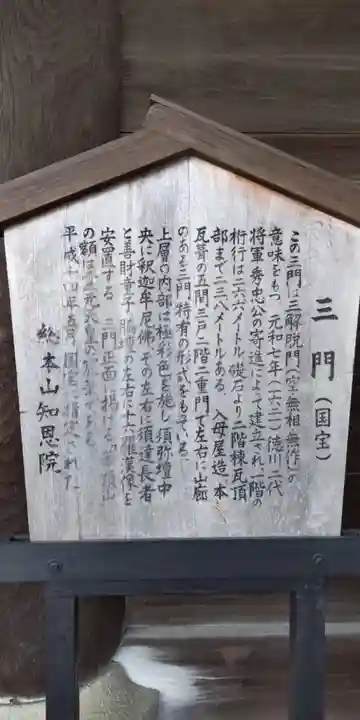 三門（国宝）
この三門は三解脱門（空・無相・無作）の
意味をもつ 元和七年（一六二一）徳川二代
将軍秀忠公の寄進によって建立され一階の
桁行は二六.六メートル 礎石より二階棟瓦頂
部まで二三.八メートルある 入母屋造 本
瓦葺の五間三戸二階二重門で左右に山廊
のある三門特有の形式をもっている
上層の内部は極彩色を施し須弥壇中
央に釈迦牟尼佛 その左右に須達長者
と善財童子 脇壇の左右に十六羅漢像を
安置する 三門正面に掲げる
の額は霊元天皇の
平成十四年 国宝に指定された
総本山知恩院